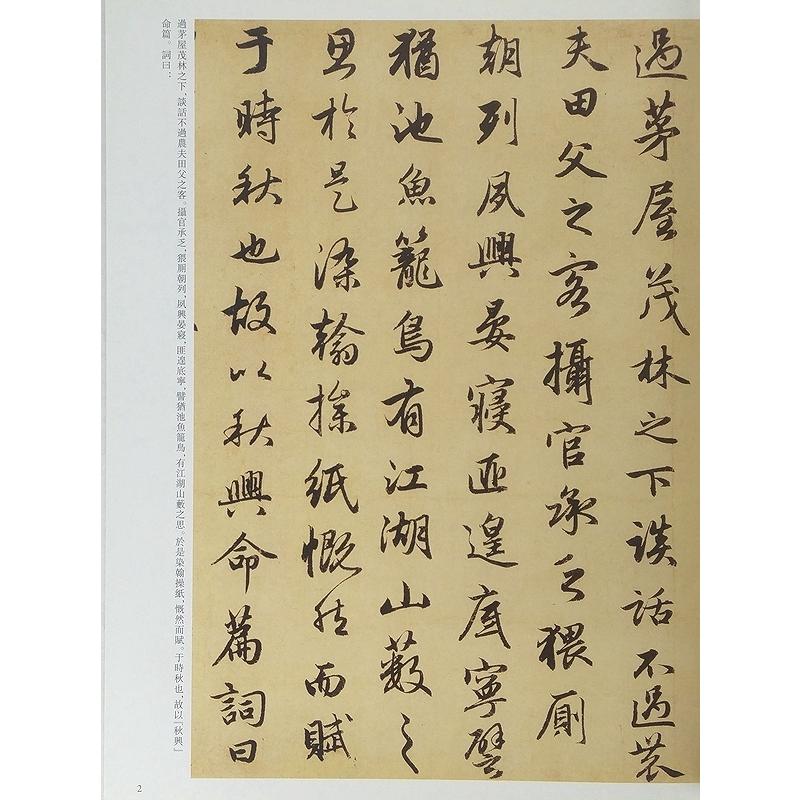 過茅屋茂林之下談話不過農
夫田父之客攝官承乏猥厠
朝列夙興晏寢匪遑底寧譬
猶池魚籠鳥有江湖山藪之
思於是染翰操紙慨然而賦
于時秋也故以秋興命篇詞曰
過茅屋茂林之下、談話不過農夫田父之客。攝官承乏、猥厠朝列、夙興晏寢、匪遑底寧、譬猶池魚籠鳥、有江湖山藪之思。於是染翰操紙、慨然而賦。于時秋也、故以「秋興」
命篇。詞曰：
2